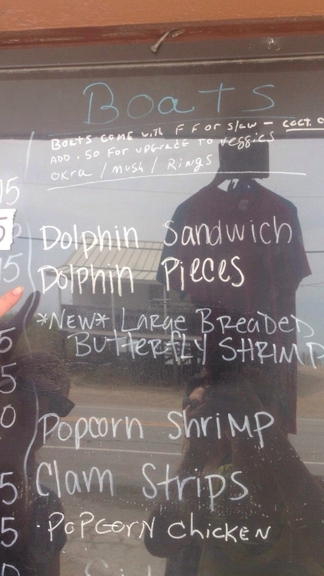 Boats
Boats come with F F or slaw - 
ADD .50 for upgrade to veggies
okra / mush / Rings
15
Dolphin Sandwich
15 Dolphin Pieces
*NEW* Large Breaded
5 Butterfly Shrimp
5
0 Popcorn Shrimp
5 Clam Strips
5 · Popcorn Chicken